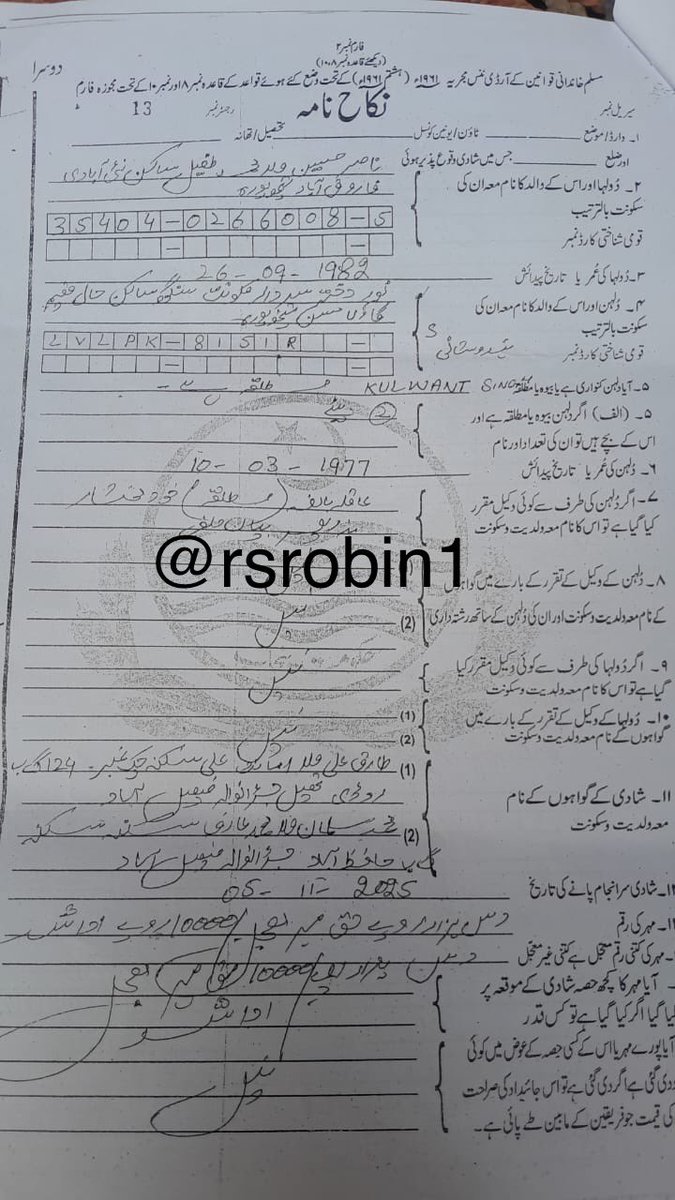 فارم نمبر ۲
(دیکھئے قاعدہ نمبر ۸ ۔ ۱۰)
دوسرا
مسلم خاندانی قوانین کے آرڈی ننس مجریہ ۱۹۶۱ء (ہشتم ۱۹۶۱ء) کے تحت وضع کئے ہوئے قواعد کے قاعدہ نمبر ۸ اور نمبر ۱۰ کے تحت مجوزہ فارم
سیریل نمبر نکاح نامہ رجسٹر نمبر 13
۱۔ وارڈ/موضع ٹاؤن/یونین کونسل تحصیل/تھانہ
اور ضلع جس میں شادی وقوع پذیر ہوئی
۲۔ دولہا اور اس کے والد کا نام معہ ان کی ناصر حسین ولد محمد طفیل ساکن نئی آبادی
سکونت بالترتیب فاروق آباد شیخوپورہ
قومی شناختی کارڈ نمبر 35404-0266008-5
۳۔ دُولہا کی عُمر یا تاریخ پیدائش 26-09-1982
۴۔ دُلہن اور اس کے والد کا نام معہ ان کی نور دختر سردار کلونت سنگھ ساکن حال مقیم
سکونت بالترتیب شیخوپورہ
قومی شناختی کارڈ نمبر LVLPK-8151R
ہندوستانی
S
۵۔ آیا دلہن کنواری ہے یا بیوہ یا مطلقہ KULWANT SINGH طلاق
۵۔ (الف) اگر دُلہن بیوہ یا مطلقہ ہے اور (2)
اس کے بچے ہیں تو ان کی تعداد اور نام
۶۔ دُلہن کی عُمر یا تاریخ پیدائش 10-03-1977
۷۔ اگر دُلہن کی طرف سے کوئی وکیل مقرر عاقلہ بالغہ (مطلقہ) خود مختار
کیا گیا ہے تو اس کا نام معہ ولدیت و سکونت
@rsrobin1
۸۔ دُلہن کے وکیل کے تقرر کے بارے میں گواہوں
کے نام معہ ولدیت و سکونت اور ان کی دُلہن کے ساتھ رشتہ داری (2)
۹۔ اگر دُولہا کی طرف سے کوئی وکیل مقرر کیا
گیا ہے تو اس کا نام معہ ولدیت و سکونت
۱۰۔ دُولہا کے وکیل کے تقرر کے بارے میں (1)
گواہوں کے نام معہ ولدیت و سکونت (2)
(1) طارق علی ولد علی سکنہ چک نمبر 124 گ ب
۱۱۔ شادی کے گواہوں کے نام تحصیل جڑانوالہ فیصل آباد
معہ ولدیت و سکونت (2) محمد سلمان ولد محمد عارف سکنہ
گ ب حافظ آباد جڑانوالہ فیصل آباد
۱۲۔ شادی سرانجام پانے کی تاریخ 05-11-2025
مہر کی رقم دس ہزار روپے حق مہر 10000/ روپے ادا شد
مہر کی کتنی رقم معجل ہے کتنی غیر معجل دس ہزار روپے 10000/ حق مہر
آیا مہر کا کچھ حصہ شادی کے موقعہ پر
کیا گیا اگر کیا گیا ہے تو کس قدر ادا شد
آیا پورے مہر یا اس کے کسی حصہ کے عوض میں کوئی
دی گئی ہے اگر دی گئی ہے تو اس جائیداد کی صراحت
کی قیمت جو فریقین کے مابین طے پائی ہے۔